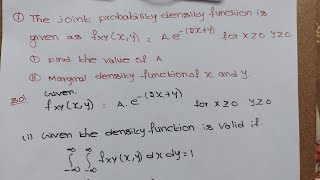 ① The joint probability density function is
given as fxy(x,y) = A.e^-(2x+y) for x≥0 y≥0
① Find the value of A
② Marginal density function of x and y.
Sol Given
fxy(x,y) = A.e^-(2x+y) for x≥0 y≥0
(i) Given the density function is valid if.
∫_-∞^∞ ∫_-∞^∞ fxy(x,y) dx dy = 1